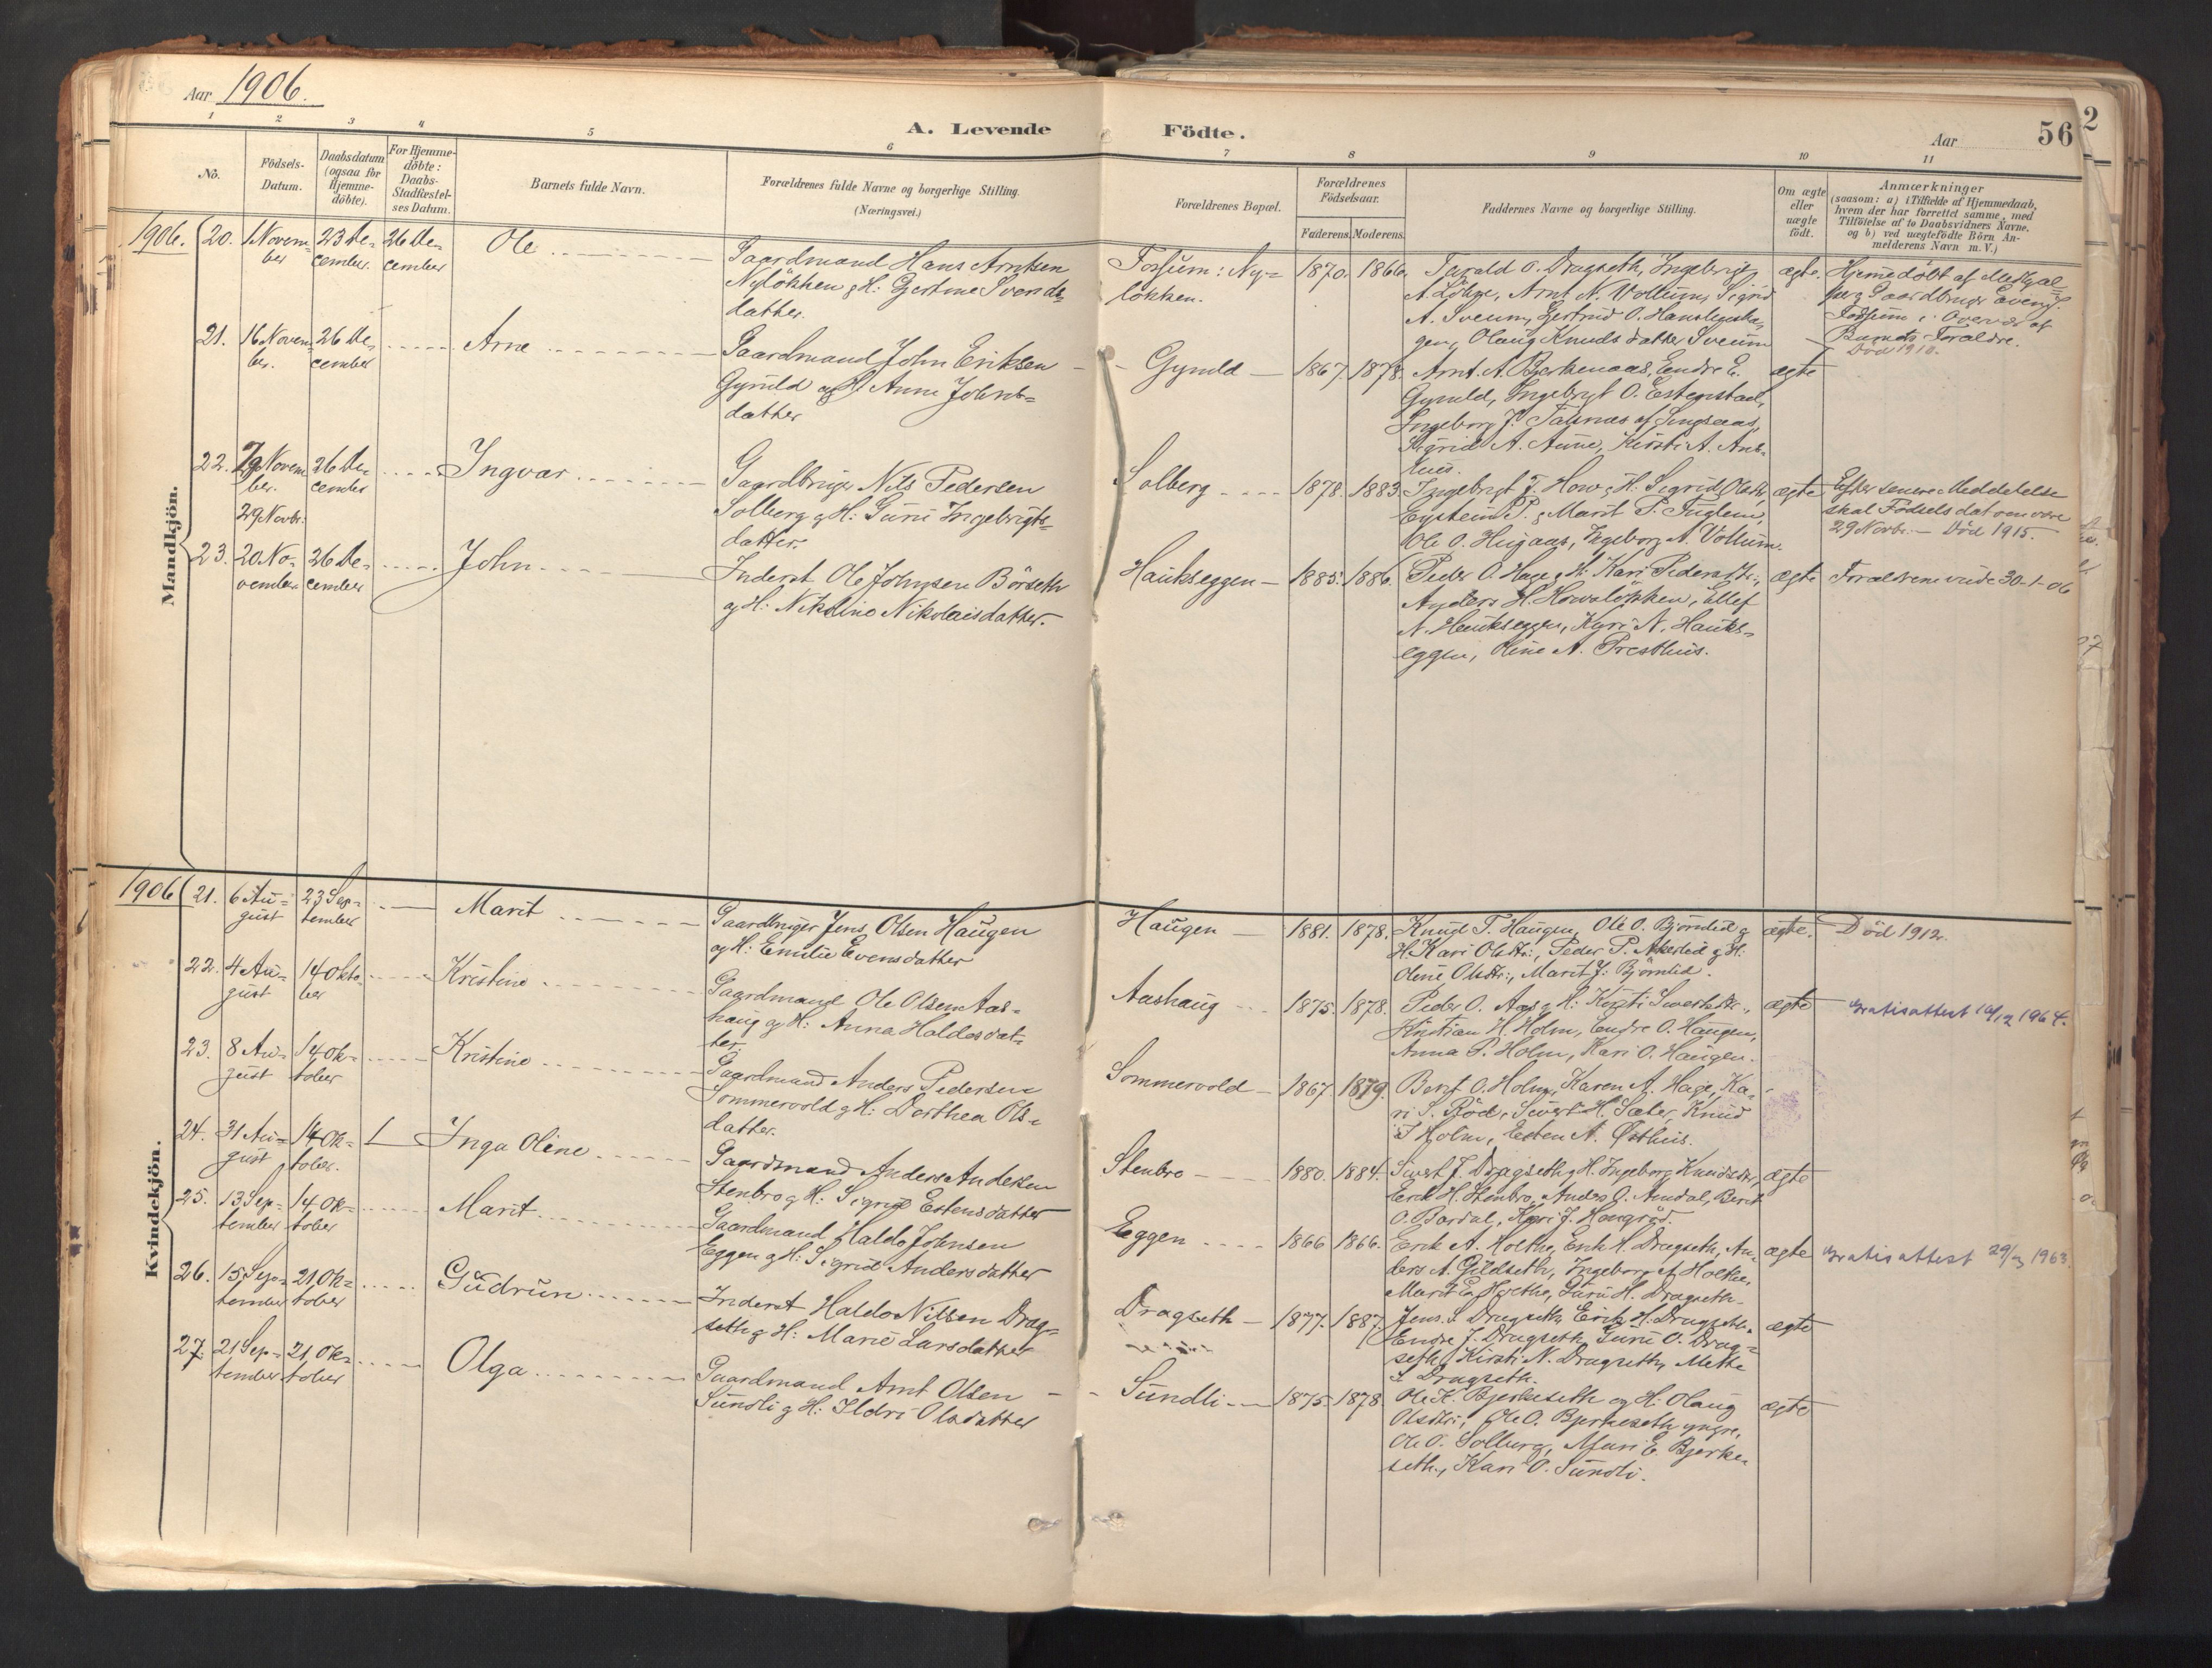 Aar 1906.
A. Levende Födte.
Aar
56
2
1 2 3 4 5 6 7 8 9 10 11
No.
Födsels-
Datum.
Daabsdatum
(ogsaa for
Hjemme-
döbte).
For Hjemme-
döbte:
Daabs-
Stadfæstel-
ses Datum.
Barnets fulde Navn.
Forældrenes fulde Navne og borgerlige Stilling.
(Næringsvei.)
Forældrenes Bopæl.
Forældrenes
Födselsaar.
Faderens. Moderens.
Faddernes Navne og borgerlige Stilling.
Om ægte
eller
uægte
födt.
Anmærkninger
(saasom: a) i Tilfælde af Hjemmedaab,
hvem der har forrettet samme, med
Tilföielse af to Daabsvidners Navne,
og b) ved uægtefödte Börn An-
melderens Navn m. V.)
Mandkjön.
1906. 20. 1 Novem-
ber
23 De-
cember.
26 De-
cember
Ole
Gaardmand Hans Arntsen
Nylökken g H: Gjertine Svends-
datter.
Fossum: Ny-
lökken.
1870. 1866.
Tarald O. Dragseth, Ingebrigt
A. Löhre, Arnt N. Vollum, Sigrid
A. Sveum, Gjertrud O. Hanslykha-
gen, Olaug Knudsdatter Sveum
ægte.
Hjemedöbt af Medhjæl-
per g Gaardbruger Even J.
Fossum i Overvær af
Barnets Forældre.
Död 1910.
21. 16 Novem-
ber.
26 De-
cember
Arne
Gaardmand John Eriksen
Gynild og H Anne Johns-
datter
Gynild
1867. 1878.
Arnt A. Bjerkenaas, Endre E.
Gynild, Ingebrigt O. Estenstad,
Ingeborg J. Talsnes af Singsaas,
Sigrid A. Aune, Kirsti A. Aas-
hus.
ægte
22. 19 Novem-
ber.
29 Novbr:
26 De-
cember
Ingvar
Gaardbruger Nils Pedersen
Solberg g H: Guru Ingebrigts-
datter.
Solberg
1878. 1883.
Ingebrigt J. Hov g H: Sigrid Olsdtr,
Eystein P. g Marit P. Fuglem,
Ole O. Hugaas, Ingeborg A. Vollum.
ægte
Efter senere Meddelelse
skal Födselsdatoen være
29 Novbr. — Död 1915.
23. 20 No-
vember
26 De-
cember
John
Inderst Ole Johnsen Börseth
g H: Nikoline Nikolaisdatter.
Haukseggen
1885. 1886.
Peder O. Hage g H: Kari Pedersdtr.,
Anders H. Hovslökken, Ellef
A. Haukseggen, Kari N. Hauks-
eggen, Oline A. Presthus.
ægte
Forældrene viede 30-1-06
Kvindekjön.
1906 21. 6 Au-
gust
23 Sep-
tember
Marit
Gaardbruger Jens Olsen Haugen
og H: Emilie Evensdatter
Haugen
1881. 1878.
Knud T. Haugen, Ole O. Bjørnlid g
H Kari Olsdtr:, Peder P. Akerlid g H:
Oline Olsdtr:, Marit J. Bjørnlid.
ægte.
Död 1912.
22. 4 Au-
gust
14 Okto-
ber
Kristine
Gaardmand Ole Olsen Aas-
haug g H: Anna Haldosdat-
ter.
Aashaug
1875. 1878.
Peder O. Aas g H: Kirsti Sivertsdtr.,
Kristian H. Holm, Endre O. Haugen,
Anna P. Holm, Kari O. Haugen.
ægte
Gratisattest 10/12 1964.
23. 8 Au-
gust
14 Ok-
tober
Kristine
Gaardmand Anders Pedersen
Sommervold g H: Dorthea Ols-
datter.
Sommervold
1867. 1879.
Berit O. Holm, Karen A. Hage, Ka-
ri S. Röd, Sivert H. Sæter, Knud
T Holm, Esten A. Østhus.
24. 31 Au-
gust
14 Ok-
tober.
Inga Oline
Gaardmand Anders Andersen
Stenbro g H: Sigrid Estensdatter
Stenbro
1880. 1884.
Sivert J. Dragseth g H. Ingeborg Knudsdtr,
Erik H. Stenbro, Anders O. Amdal, Berit
O. Bardal, Kari J. Haugrød.
ægte
25. 13 Sep-
tember
14 Ok-
tober
Marit
Gaardmand Haldo Johnsen
Eggen g H: Sigrid Andersdatter
Eggen
1866 1866.
Erik A. Holthe, Erik H. Dragseth, An-
ders A. Gildseth, Ingeborg A. Holthe,
Marit E. Holthe, Guru H. Dragseth.
ægte
Gratisattest 29/3 1963.
26. 15 Sep-
tember
21 Ok-
tober
Gudrun
Inderst Haldo Nilsen Drag-
seth g H: Marie Larsdatter
Dragseth
1877. 1887.
Jens S Dragseth, Erik H. Dragseth,
Endre J. Dragseth, Guru O. Drag-
seth, Kirsti N. Dragseth, Mette
S Dragseth.
ægte
27. 21 Sep-
tember
21 Ok-
tober
Olga
Gaardmand Arnt Olsen
Sundli g H: Ildri Olsdatter
Sundli
1875. 1878
Ole K. Bjerkeseth og H: Olaug
Olsdtr:, Ole O. Bjerkeseth yngre,
Ole O. Solberg, Mari E. Bjerke-
seth, Kari O. Sundli.
ægte